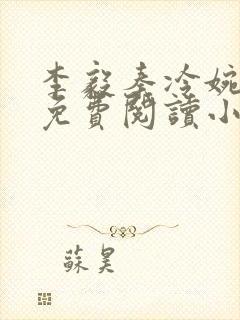 李毅秦冷婉
免費閱讀小
蘇昊